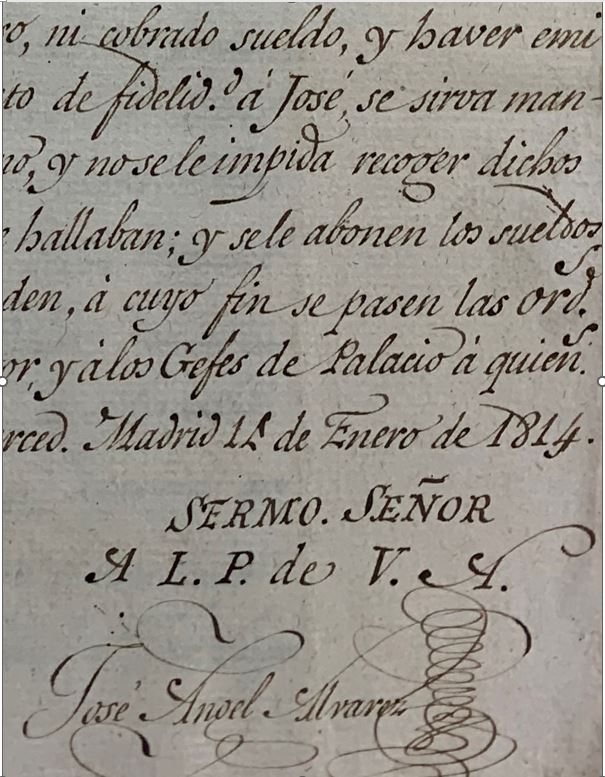 ro, ni cobrado sueldo, y haver emi
to de fidelid.d á José, se sirva man-
no, y no se le impida recoger dichos
e hallaban; y sele abonen los sueldos
den, á cuyo fin se pasen las ord.s
or, y álos Gefes de Palacio á quien.s
rced. Madrid de Enero de 1814.
SERMO. SEÑOR
A L. P. de V. A.
José Angel Alvarez